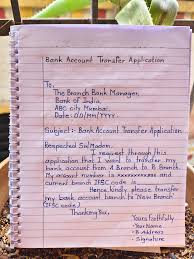 Bank Account Transfer Application
To,
The Branch Bank Manager,
Bank of India,
ABC city Mumbai,
Date: DD/MM/YYYY.
Subject:- Bank Account Transfer Application.
Respected Sir/Madam,
I request through this
application that I want to transfer my
bank account from A Branch to B Branch.
My account number is xxxxxxxxxx
and current branch IFSC code is
Hence kindly please transfer
my bank account branch to 'New Branch'
(IFSC code.)
Thanking You,
Yours Faithfully
- Your Name
- B Address
- Signature